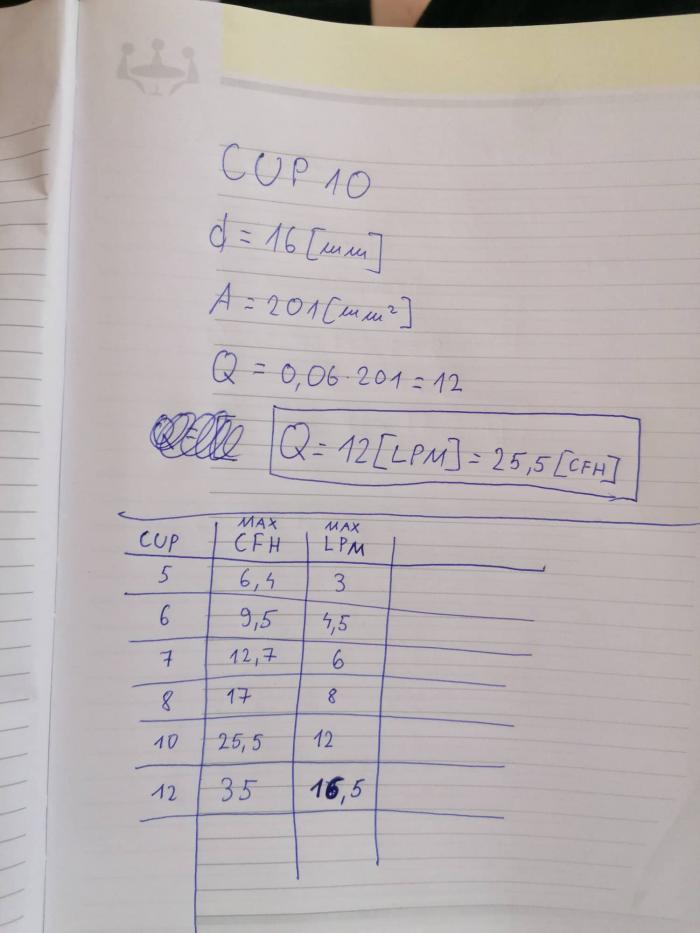 CUP 10
d = 16 [mm]
A = 201 [mm²]
Q = 0,06 · 201 = 12
Q = 12 [LPM] = 25,5 [CFH]
CUP MAX CFH MAX LPM
5 6,4 3
6 9,5 4,5
7 12,7 6
8 17 8
10 25,5 12
12 35 16,5